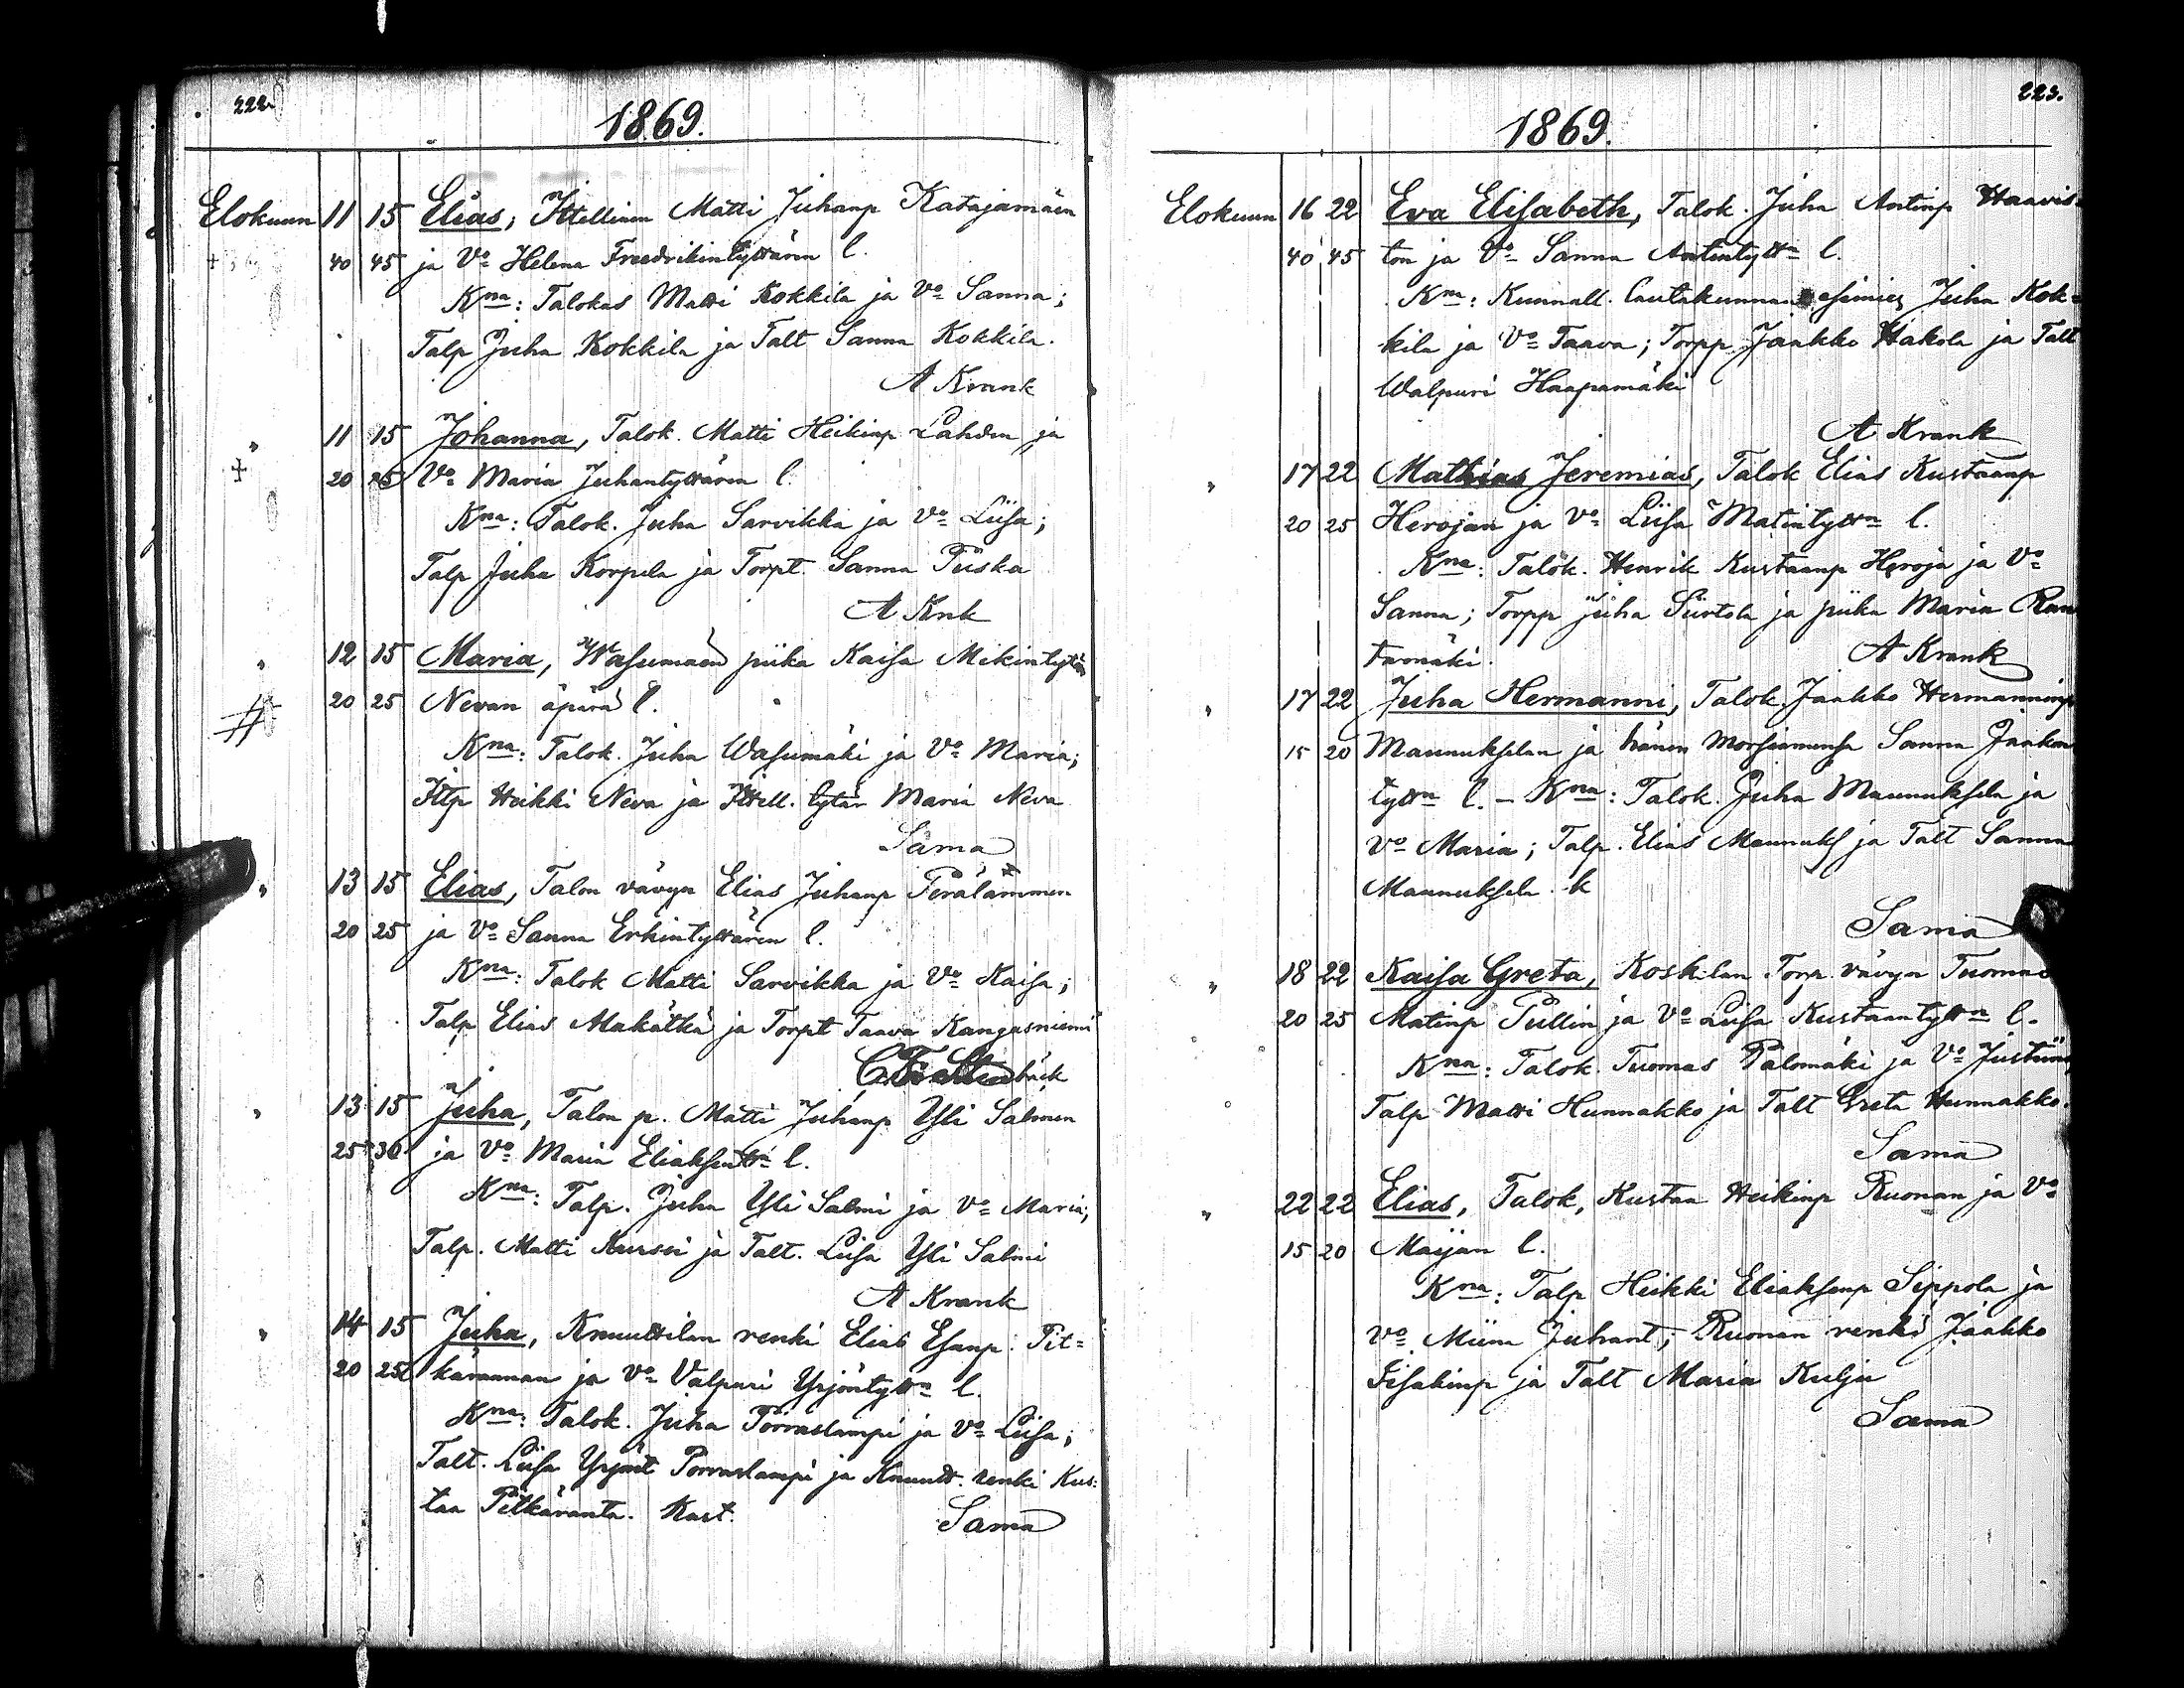 222.
1869.
Elokuun 11 15 Elias, Ittellinen Matti Juhanp Katajamäen
40 45 ja Vo Helena Freedrikintyttären l.
Kna: Talokas Matti Kokkila ja Vo Sanna;
Talp Juha Kokkila ja Talt Sanna Kokkila.
A Krank
" 11 15 Johanna, Talok. Matti Heikinp Lahden ja
‡ 20 25 Vo Maria Juhantyttären l.
Kna: Talok. Juha Sarvikka ja Vo Liisa;
Talp Juha Korpela ja Torpt. Sanna Piiska
A Knk
" 12 15 Maria, Wasumaen piika Kaisa Mikintytär
# 20 25 Nevan äpärä l.
Kna: Talok. Juha Wasumäki ja Vo Maria;
Ittp Heikki Neva ja Ittell. tytär Maria Neva
Sama
" 13 15 Elias, Talon vävyn Elias Juhanp Perälammen
20 25 ja Vo Sanna Erkintyttären l.
Kna: Talok Matti Sarvikka ja Vo Kaisa;
Talp Elias Mukätkä ja Torpt Taava Kangasniemi
bäck
" 13 15 Juha, Talon p. Matti Juhanp Yli Salmen
25 30 ja Vo Maria Eliaksentn l.
Kna: Talp. Juha Yli Salmi ja Vo Maria;
Talp. Matti Kursi ja Talt. Liisa Yli Salmi
A Krank
" 14 15 Juha, Knuuttilan renki Elias Esanp. Pit=
20 25 kärannan ja Vo Valpuri Yrjöntyttn l.
Kna: Talok. Juha Porraslampi ja Vo Liisa;
Talt. Liisa Yrjönt Porraslampi ja Knuutt. renki Kus:
taa Pitkäranta. Kast. Sama
223.
1869.
Elokuun 16 22 Eva Elisabeth, Talok. Juha Antinp Haavis-
40 45 ton ja Vo Sanna Antintyttn l.
Kna: Kunnall. lautakunnan esimies Juha Kok=
kila ja Vo Taava; Torpp Jaakko Hakola ja Talt
Walpuri Haapamäki
A Krank
" 17 22 Mathias Jeremias, Talok Elias Kustaanp
20 25 Herojan ja Vo Liisa Matintyttn l.
Kna: Talok. Henrik Kustaanp Heroja ja Vo
Sanna; Torpp Juha Siirtola ja piika Maria Ran
tamäki. A Krank
" 17 22 Juha Hermanni, Talok. Jaakko Hermanninp
15 20 Maunukselan ja hänen morsiamensa Sanna Jaakon
tyttn l. – Kna: Talok. Juha Maunuksela ja
Vo Maria; Talp. Elias Maunuks ja Talt Sanna
Maunuksela. k
Sama
" 18 22 Kaisa Greta, Koskilan Torp. vävyn Tuomas
20 25 Matinp Pullin ja Vo Liisa Kustaantyttn l.
Kna: Talok. Tuomas Palomäki ja Vo Justiina
Talp Matti Hunnakko ja Talt Greta Hunnakko.
Sama
" 22 22 Elias, Talok, Kustaa Heikinp Ruonan ja Vo
15 20 Maijan l.
Kna: Talp Heikki Eliaksenp Sippola ja
Vo Miina Juhant; Ruonan renki Jaakko
Iisakinp ja Talt Maria Kulju
Sama